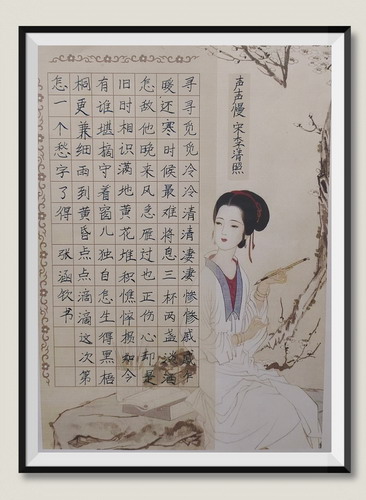 声声慢 宋 李清照
寻寻觅觅冷冷清清凄凄惨惨戚戚乍
暖还寒时候最难将息三杯两盏淡酒
怎敌他晚来风急雁过也正伤心却是
旧时相识满地黄花堆积憔悴损如今
有谁堪摘守着窗儿独自怎生得黑梧
桐更兼细雨到黄昏点点滴滴这次第
怎一个愁字了得 张涵钦书